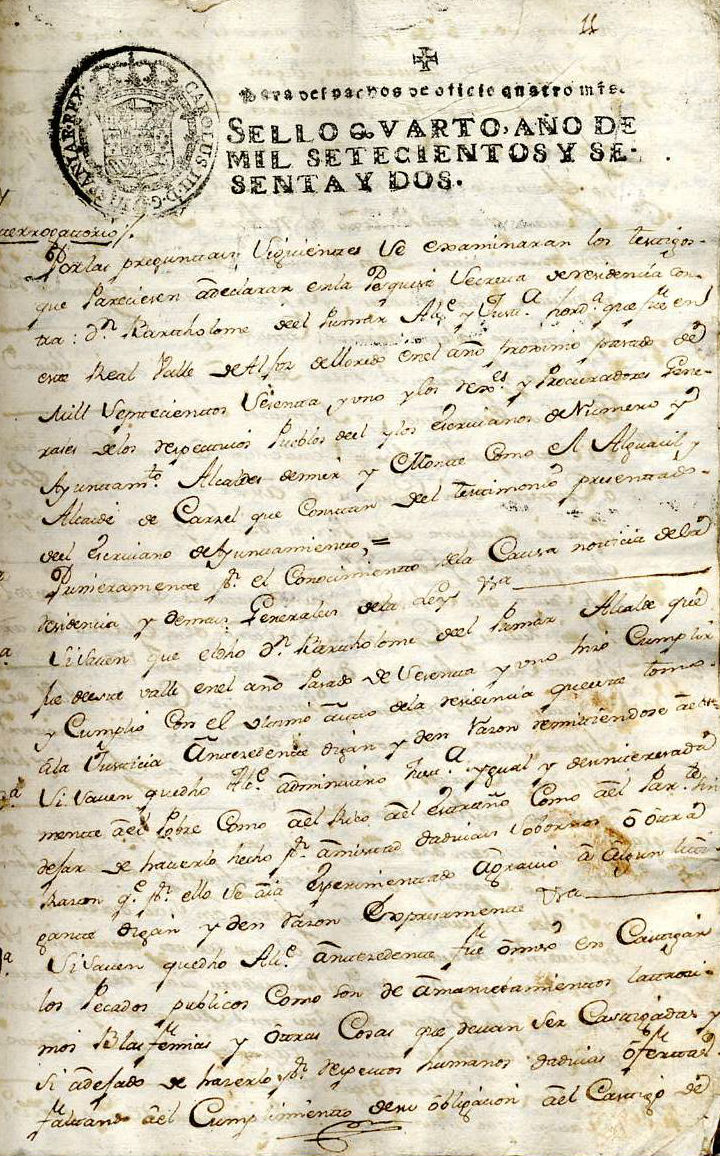 11
CAROLUS III D G HISPANIAR REX
Para despachos de oficio quatro mrs.
SELLO QVARTO, AÑO DE
MIL SETECIENTOS Y SE-
SENTA Y DOS.
Y
terrogatorio /.
Por las preguntas Siguientes se examinaran los testigos
que Pareciesen adeclarar en la Pesquisa Secreta de residencia con-
tra: Dn Bartholome del Pumar Alce y Justa hordª que fue en
este Real Valle de Alfoz de lloredo en el año proximo pasado de
Mill Septecientos Sesenta y uno y los rexes y Procuradores Gene-
rales de los respectivos Pueblos del y los Escrivanos de Numero y
Ayuntamto Alcaldes de mer y Monte Como el Alguacil y
Alcaide de Carzel que Constan del testimonio presentado
del Escrivano de Ayuntamiento, =
Primeramente pr el Conocimiento de la Causa noticia de la
residencia y demas Generales de la Ley
ª Si Saven que eldho Dn Bartholome del Pumar Alcalde que
fue de este valle en el año Pasado de Sesenta y uno hizo Cumplir
y Cumplio Con el ultimo auto de la residencia que se tomo
ala Justicia Antecedente digan y den razon remitiendose
3ª Si Saven quedho Alce administro Justª ygual y desinteresada
mente ael Pobre Como ael Rico ael estraño Como ael Parte sin
dejar de haverlo hecho pr amistad dadivas sobornos ô ôtra
Razon qe pr ello se aia Esperimentado Agravio â Algun liti-
gante digan y den razon Expresamente
ª Si Saven quedho Alce Antecedente fue ômiso en Castigar
los Pecados publicos Como son de Amancebamientos latroci-
nios Blasfemias y ôtras Cosas que devan ser Castigadas y
si adejado de hazerlo pr respectos humanos dadivas ô ofertas
faltando ael Cumplimiento de su obligacion ael Castigo de